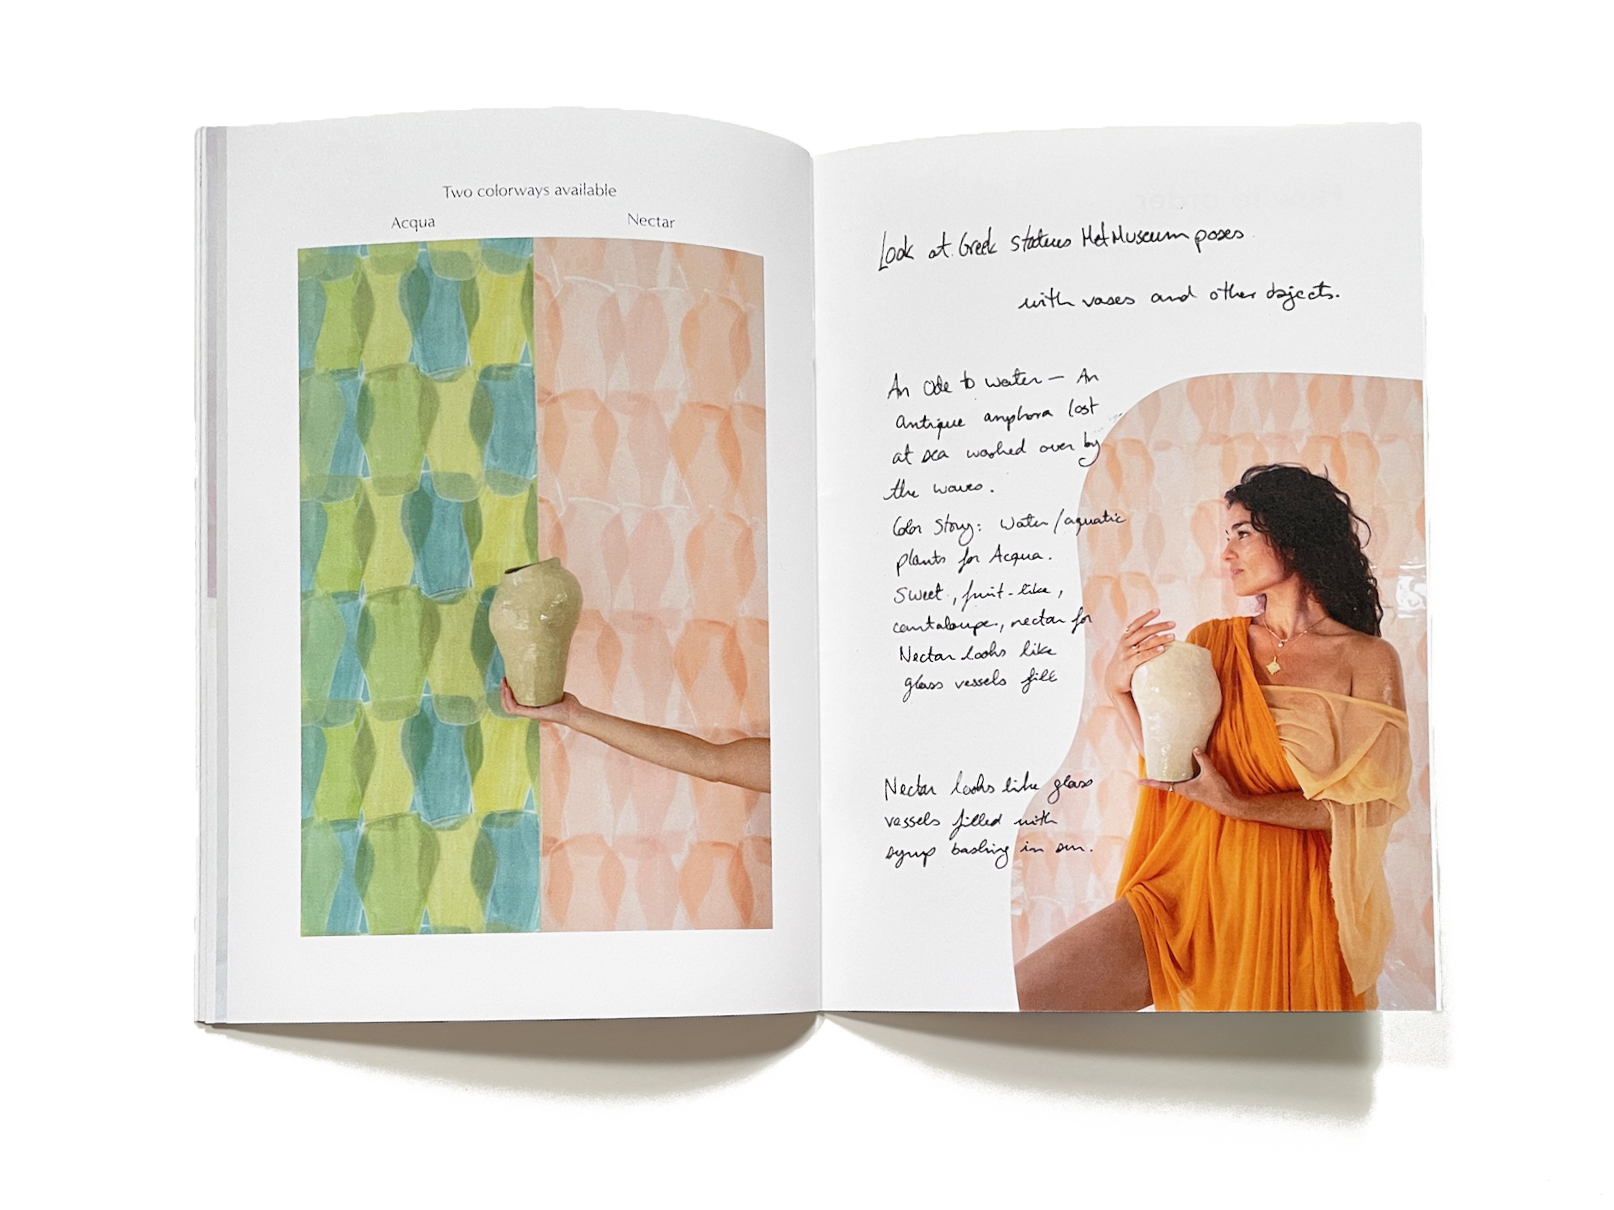 Two colorways available
Acqua
Nectar
Look at Greek statues Met Museum poses
with vases and other objects.
An Ode to water — An
Antique amphora lost
at sea washed over by
the waves.
Color Story: Water/aquatic
plants for Acqua.
Sweet, fruit-like,
cantaloupe, nectar for
Nectar looks like
glass vessels fill
Nectar looks like glass
vessels filled with
syrup bashing in sun.